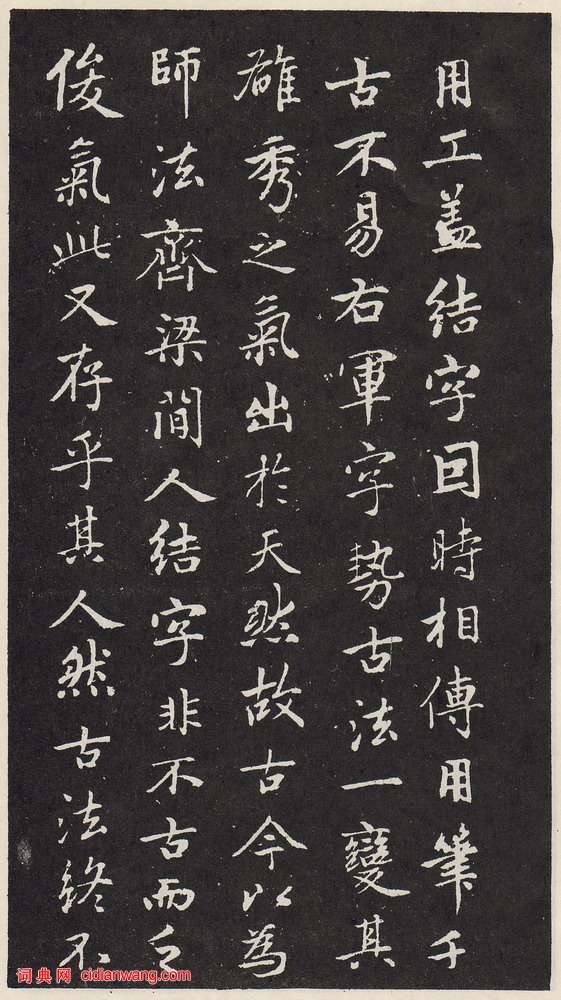 用工盖结字因時相傳用筆千
古不易右軍字勢古法一變其
雄秀之氣出於天然故古今以為
師法齊梁間人结字非不古而乏
俊氣此又存乎其人然古法終不
词典网 cidianwang.com